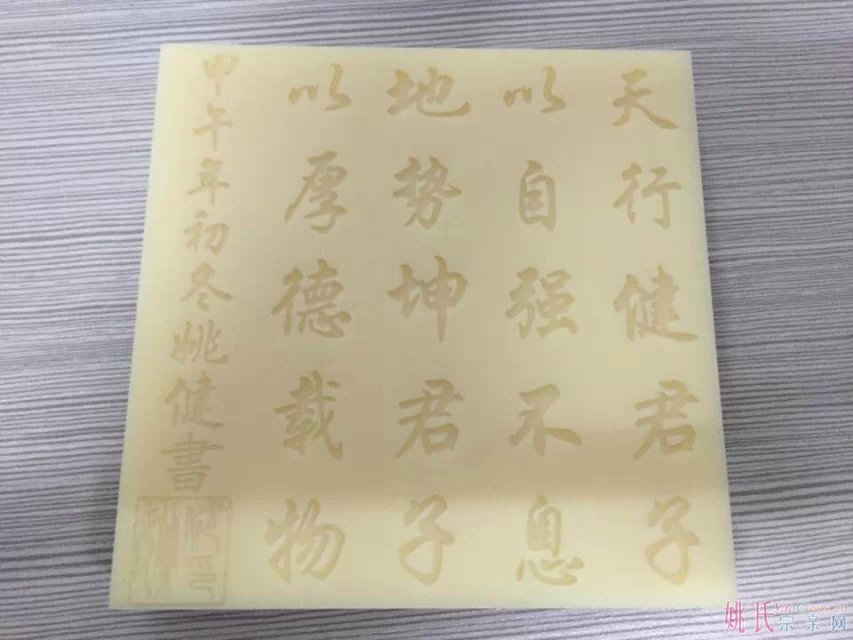 天行健君子
以自强不息
地势坤君子
以厚德载物
甲午年初冬姚健書
姚氏宗亲网